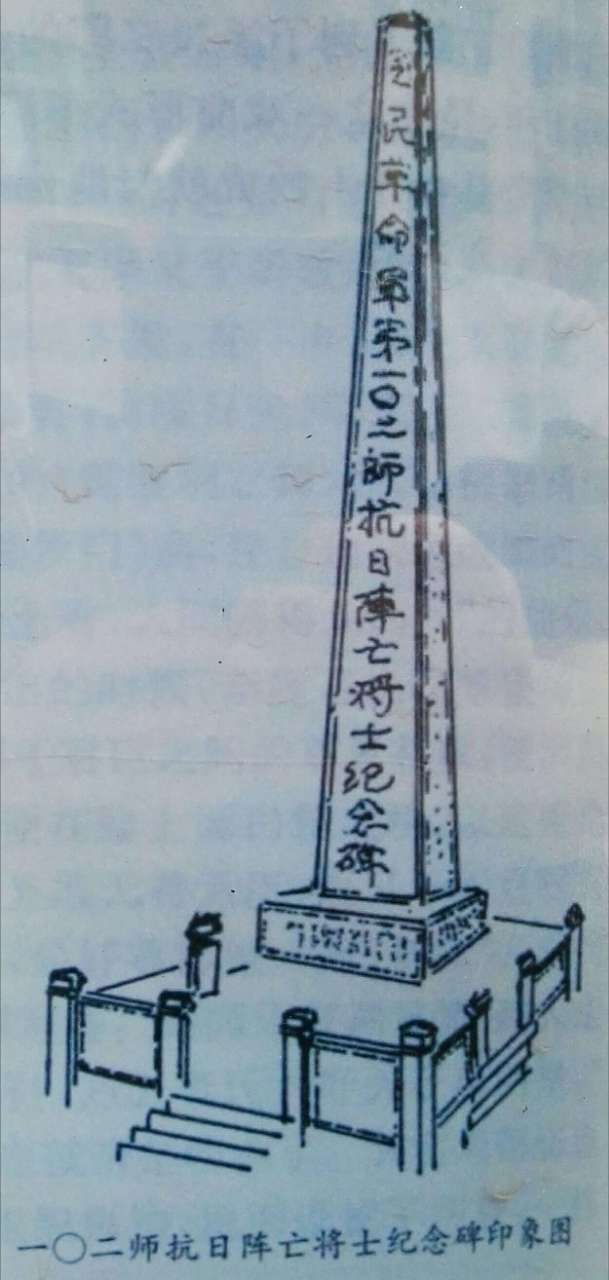 国民革命軍第一〇二師抗日陣亡将士纪念碑
一〇二师抗日阵亡将士纪念碑印象图